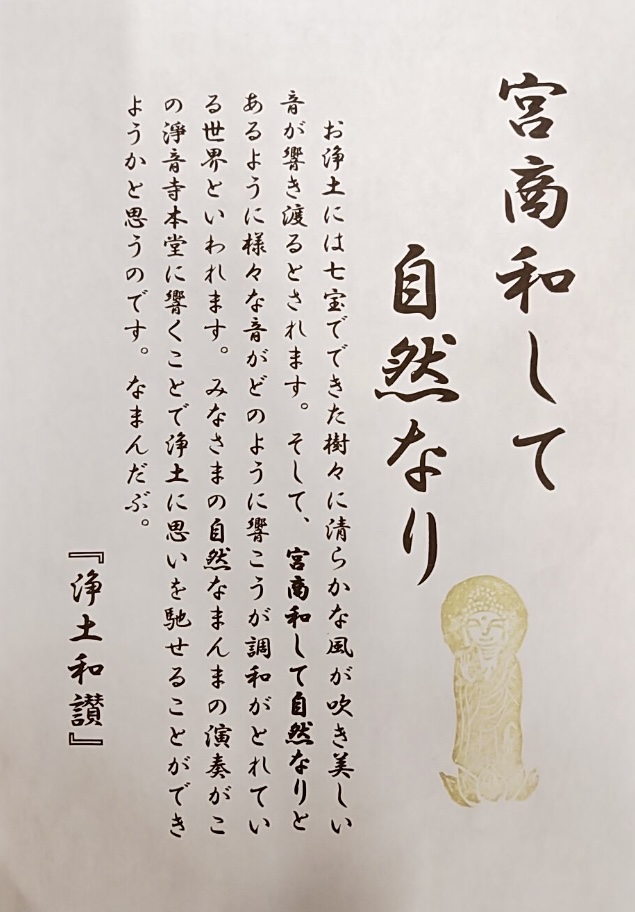 宮商和して
自然なり
お浄土には七宝でできた樹々に清らかな風が吹き美しい
音が響き渡るとされます。そして、宮商和して自然なりと
あるように様々な音がどのように響こうが調和がとれてい
る世界といわれます。みなさまの自然なまんまの演奏がこ
の淨音寺本堂に響くことで浄土に思いを馳せることができ
ようかと思うのです。なまんだぶ。
『浄土和讃』